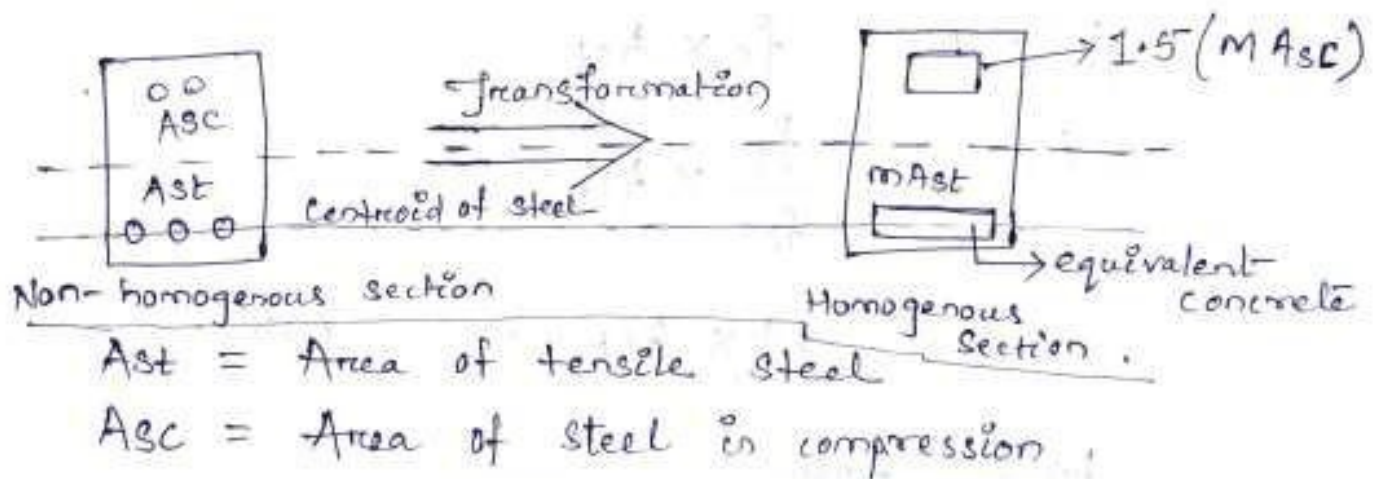 1.5 (m Asc)
ASC
Transformation
Ast
mAst
Centroid of steel
equivalent
concrete
Non-homogenous section
Homogenous
Section.
Ast = Area of tensile steel
Asc = Area of steel in compression.